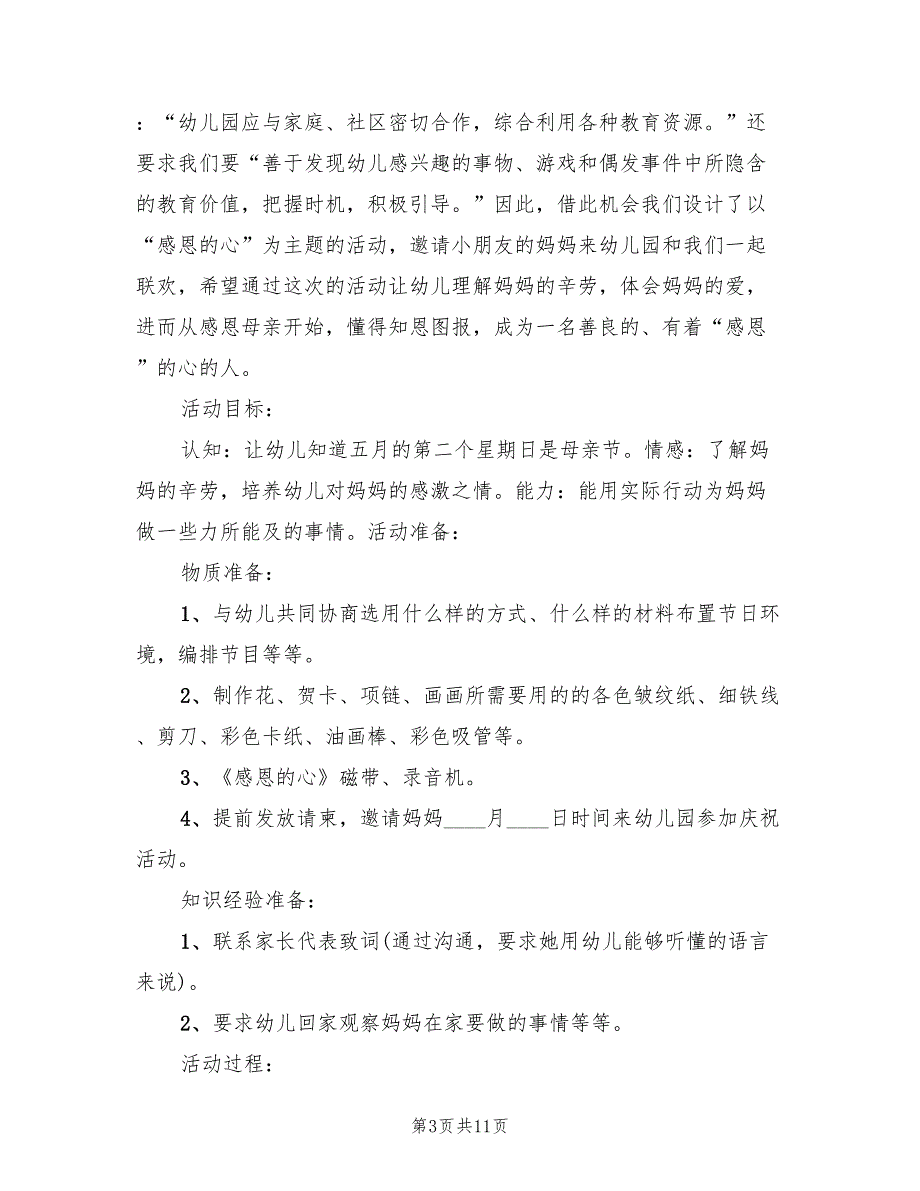 ：“幼儿园应与家庭、社区密切合作，综合利用各种教育资源。”还
要求我们要“善于发现幼儿感兴趣的事物、游戏和偶发事件中所隐含
的教育价值，把握时机，积极引导。”因此，借此机会我们设计了以
“感恩的心”为主题的活动，邀请小朋友的妈妈来幼儿园和我们一起
联欢，希望通过这次的活动让幼儿理解妈妈的辛劳，体会妈妈的爱，
进而从感恩母亲开始，懂得知恩图报，成为一名善良的、有着“感恩
”的心的人。
活动目标：
认知：让幼儿知道五月的第二个星期日是母亲节。情感：了解妈
妈的辛劳，培养幼儿对妈妈的感激之情。能力：能用实际行动为妈妈
做一些力所能及的事情。活动准备：
物质准备：
1、与幼儿共同协商选用什么样的方式、什么样的材料布置节日环
境，编排节目等等。
2、制作花、贺卡、项链、画画所需要用的的各色皱纹纸、细铁线
、剪刀、彩色卡纸、油画棒、彩色吸管等。
3、《感恩的心》磁带、录音机。
4、提前发放请柬，邀请妈妈____月____日时间来幼儿园参加庆祝
活动。
知识经验准备：
1、联系家长代表致词(通过沟通，要求她用幼儿能够听懂的语言
来说)。
2、要求幼儿回家观察妈妈在家要做的事情等等。
活动过程：
第3页共11页